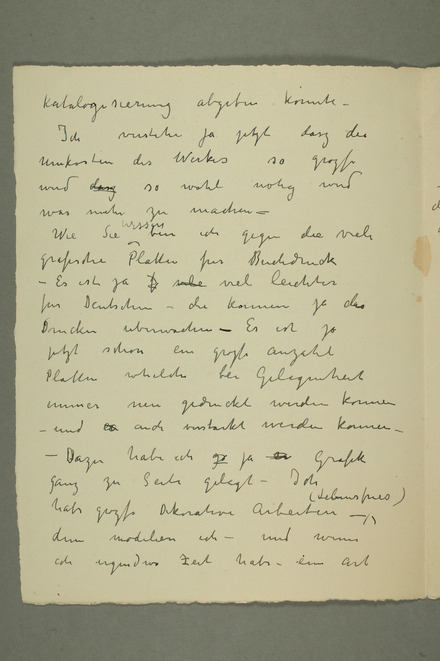 Katalogisierung abgeben könnte –
Ich verstehe ja jetzt dasz die
Unkosten des Werkes so grosze
wird dasz so wohl nötig wird
was mehr zu machen –
Wie Sie wissen bin ich gegen die viele
grafische Platten fur Buchdruck
– Es ist ja viel leichter
fur Deutschen – die konnen ja das
Drucken uberwachen – Es ist ja
jetzt schon ein grosze anzahl
Platten welche bei Gelegenheit
immer neu gedruckt werden konnen
– und auch verstarkt werden konnen –
– Dazu habe ich ja Grafik
ganz zu Seite gelegt – Ich
(Lebensfries)
habe grosze Dekorative Arbeiten –
ich – und wenn
ich irgendwo Zeit habe – ein art